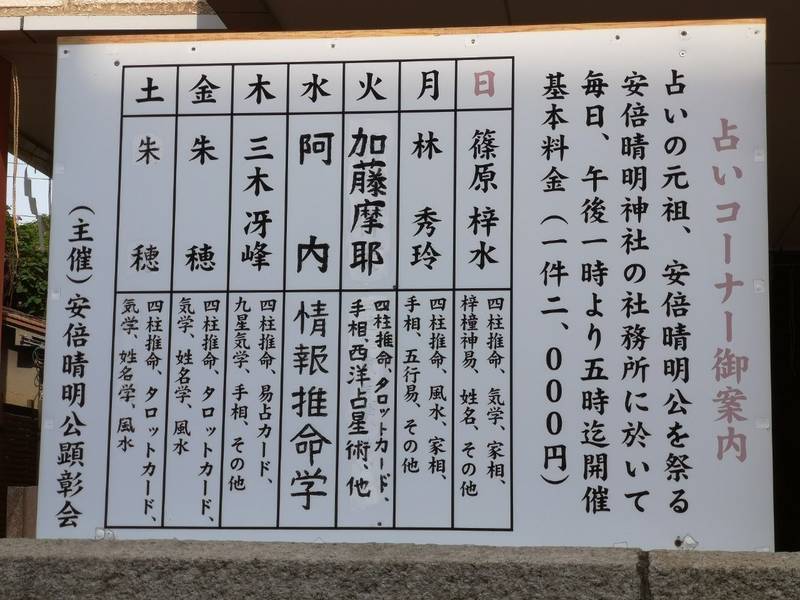 占いコーナー御案内
占いの元祖、安倍晴明公を祭る
安倍晴明神社の社務所に於いて
毎日、午後一時より五時迄開催
基本料金（一件二、000円）
日
篠原 梓水
四柱推命、気学、家相、
梓橦神易、姓名、その他
月
林 秀玲
四柱推命、風水、家相、
手相、五行易、その他
火
加藤摩耶
四柱推命、タロットカード、
手相、西洋占星術、他
水
阿 内
情報推命学
木
三木 冴峰
四柱推命、易占カード、
九星気学、手相、その他
金
朱 穂
四柱推命、タロットカード、
気学、姓名学、風水
土
朱 穂
四柱推命、タロットカード、
気学、姓名学、風水
（主催）安倍晴明公顕彰会